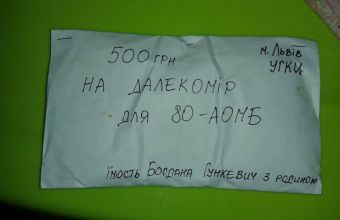 500 ГРН
м. Львів
УГКЦ
НА ДАЛЕКОМІР
для 80-АОМБ
їмость Богдана Гункевич з родиною